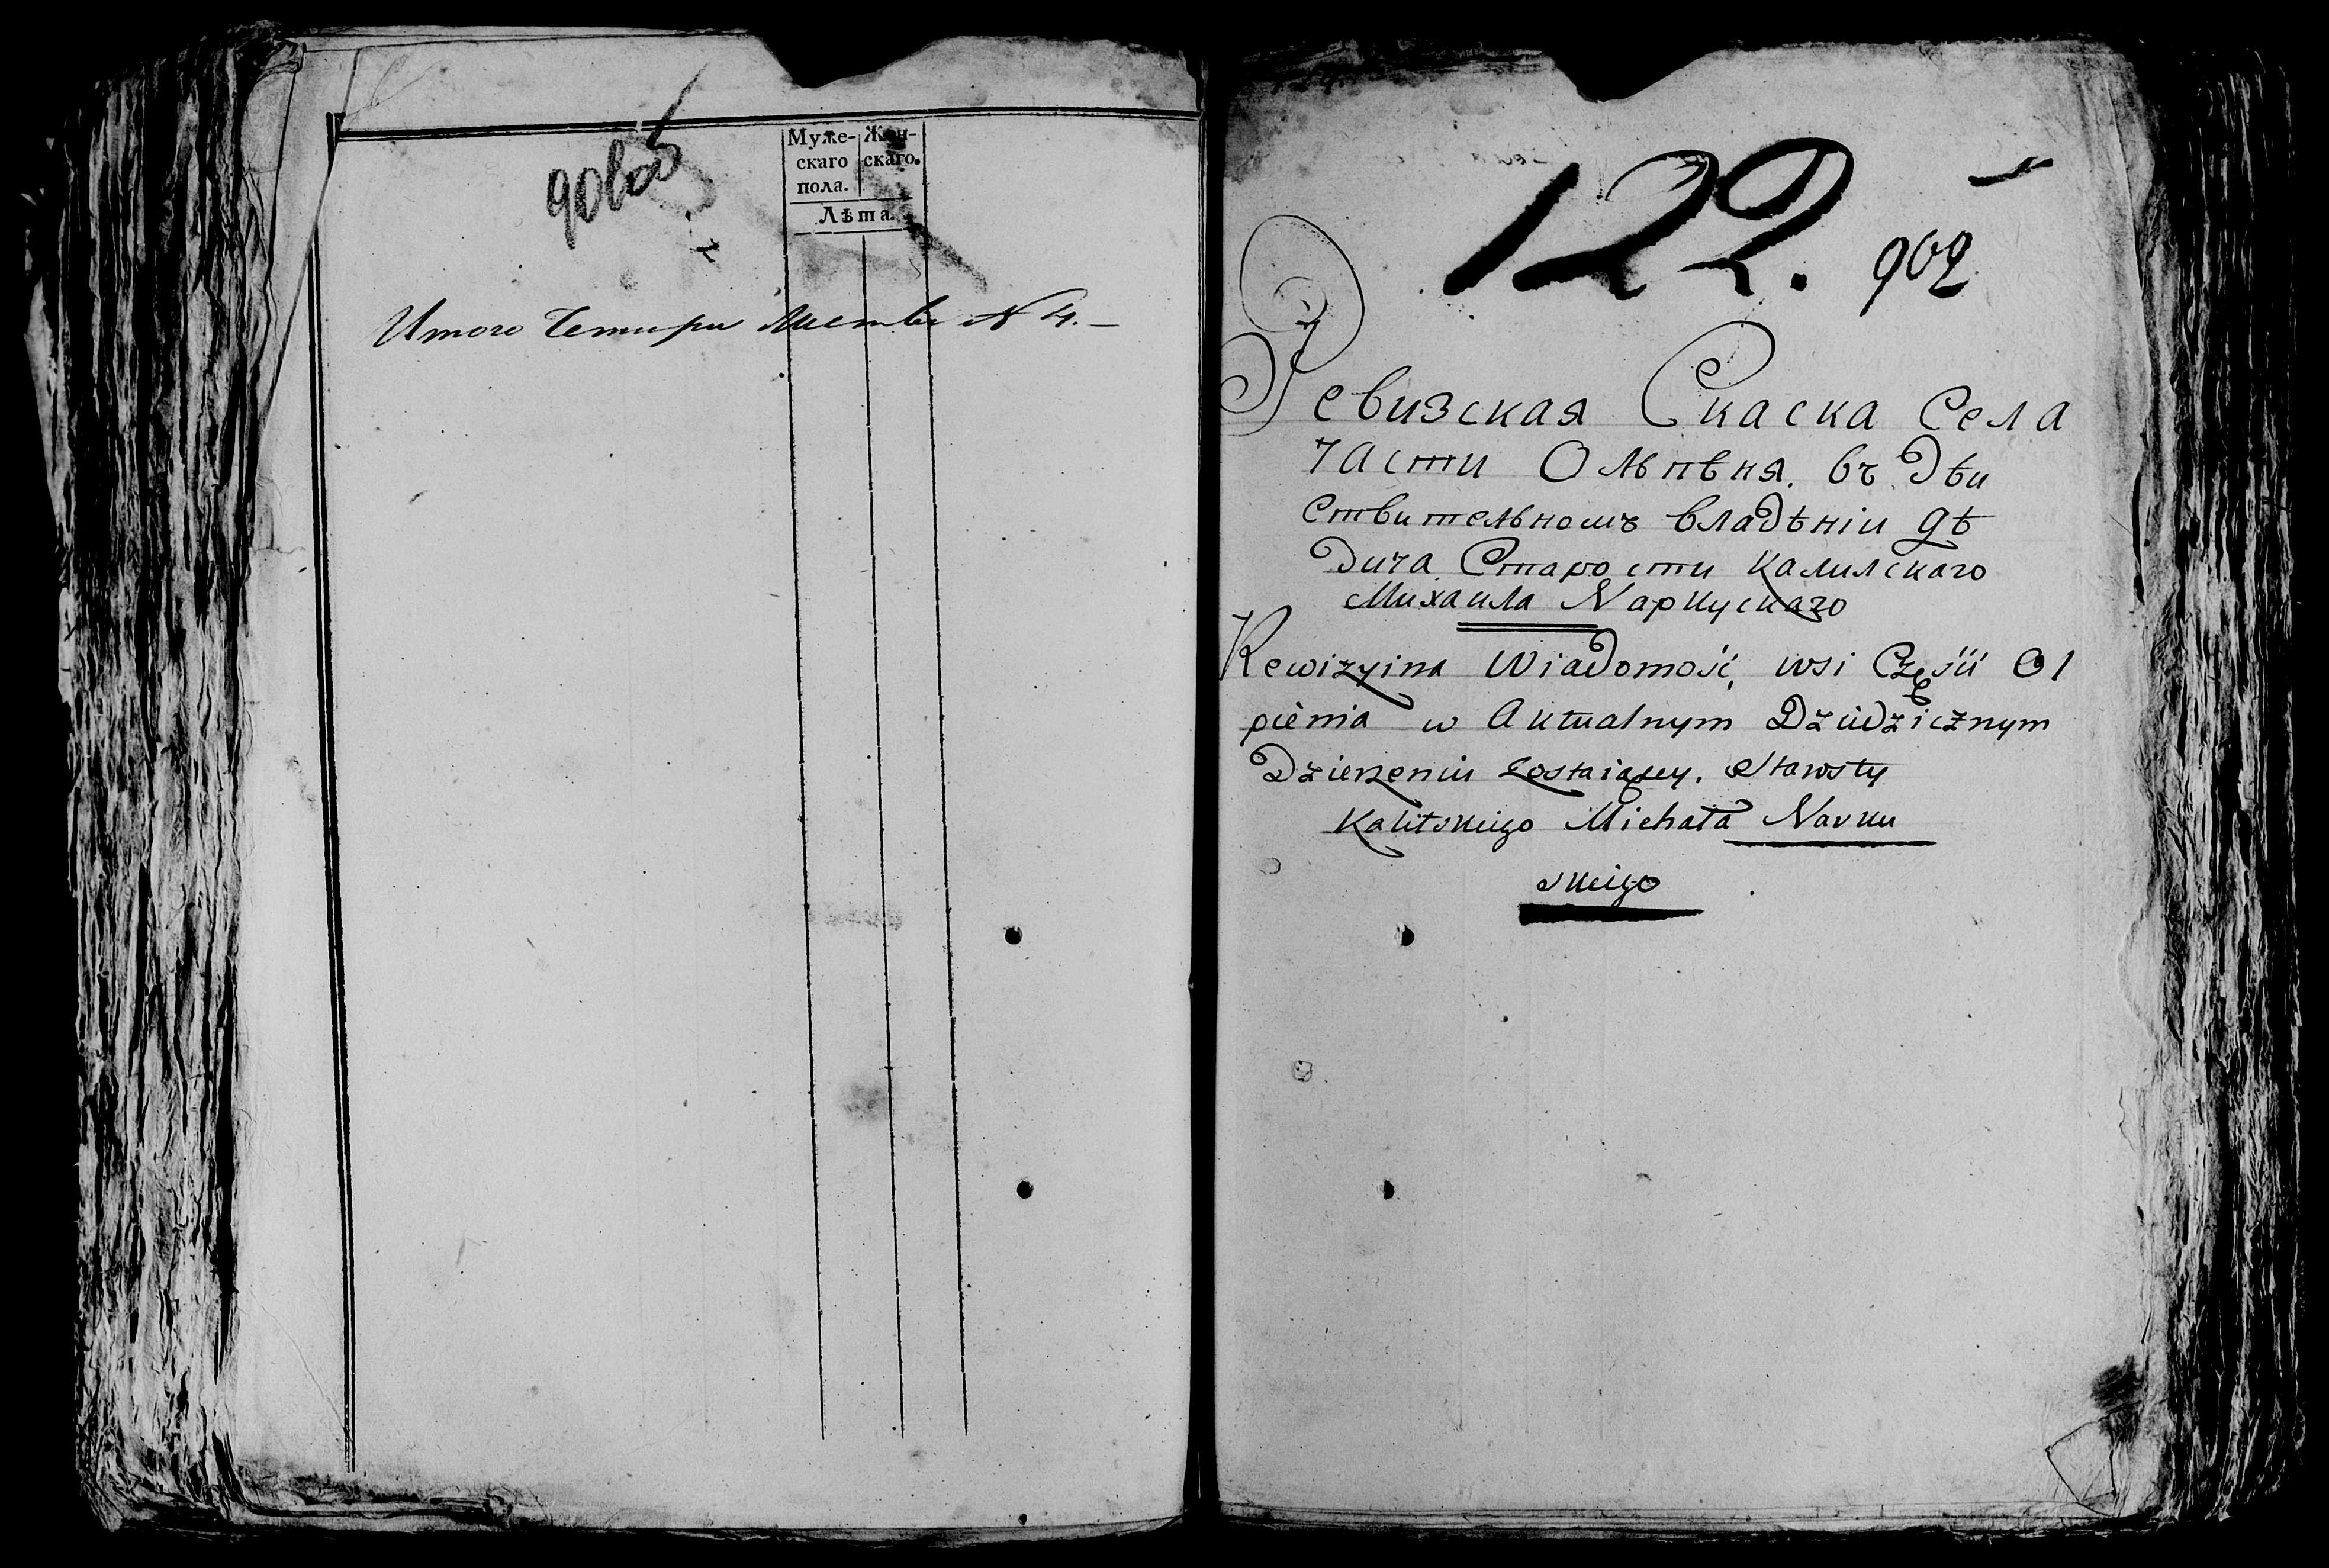 Муже-
скаго
пола.
Жен-
скаго.
Лѣта.
Итого Четири Листы N 4.
122. 902
Ревизская Скаска Села
части Ольпѣня. въ Дѣи
ствительномъ владѣніи дѣ
дича Старости Калилскаго
Михаила Наркускаго
Rewizyina Wiadomość, wsi Części Ol
pienia w Aktualnym Dziedzicznym
Dzierzeniu zostaiącey. Starosty
Kalitskiego Michała Narku
skiego